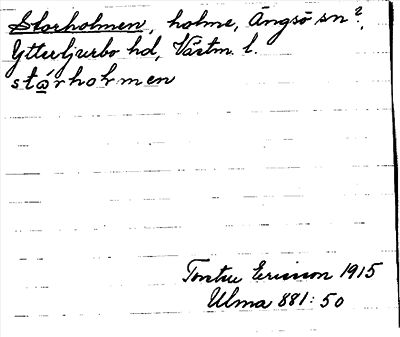 Storholmen, holme, Ängsö sn?,
Ytterljurbo hd, Västm. l.
stårholmen
Torsten Ericsson 1915
Ulma 881:50